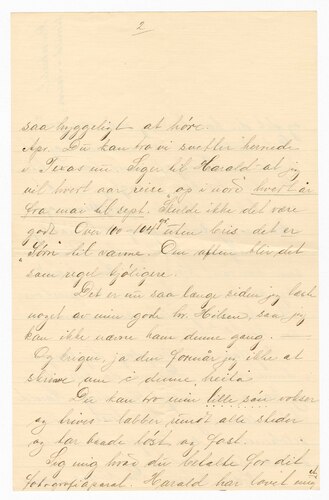 2
saa hyggeligt at høre.
Apr. Du kan tro vi svetter hernede
i Texas nu. Siger til Harald at jeg
vil hvert aar reise op i nord hvert år
fra mai til sept. Skulde ikke det være
godt. Over 100-104° uten bris - det er
"Sòm" til varme. Om aften blir det
som regel kjøligere.
Det er nu saa længe siden jeg hørte
noget av min gode br. Hilsen, saa jeg
kan ikke nævne ham denne gang. —
Og krigen, ja den formår jeg ikke at
skrive om i denne heita
Du kan tro min lille søn vokser
og trives - labber rundt alle steder
og tar baade løst og fast.
Sig mig hvad du betalte for dit
fotografiaparat. Harald har lovet mig